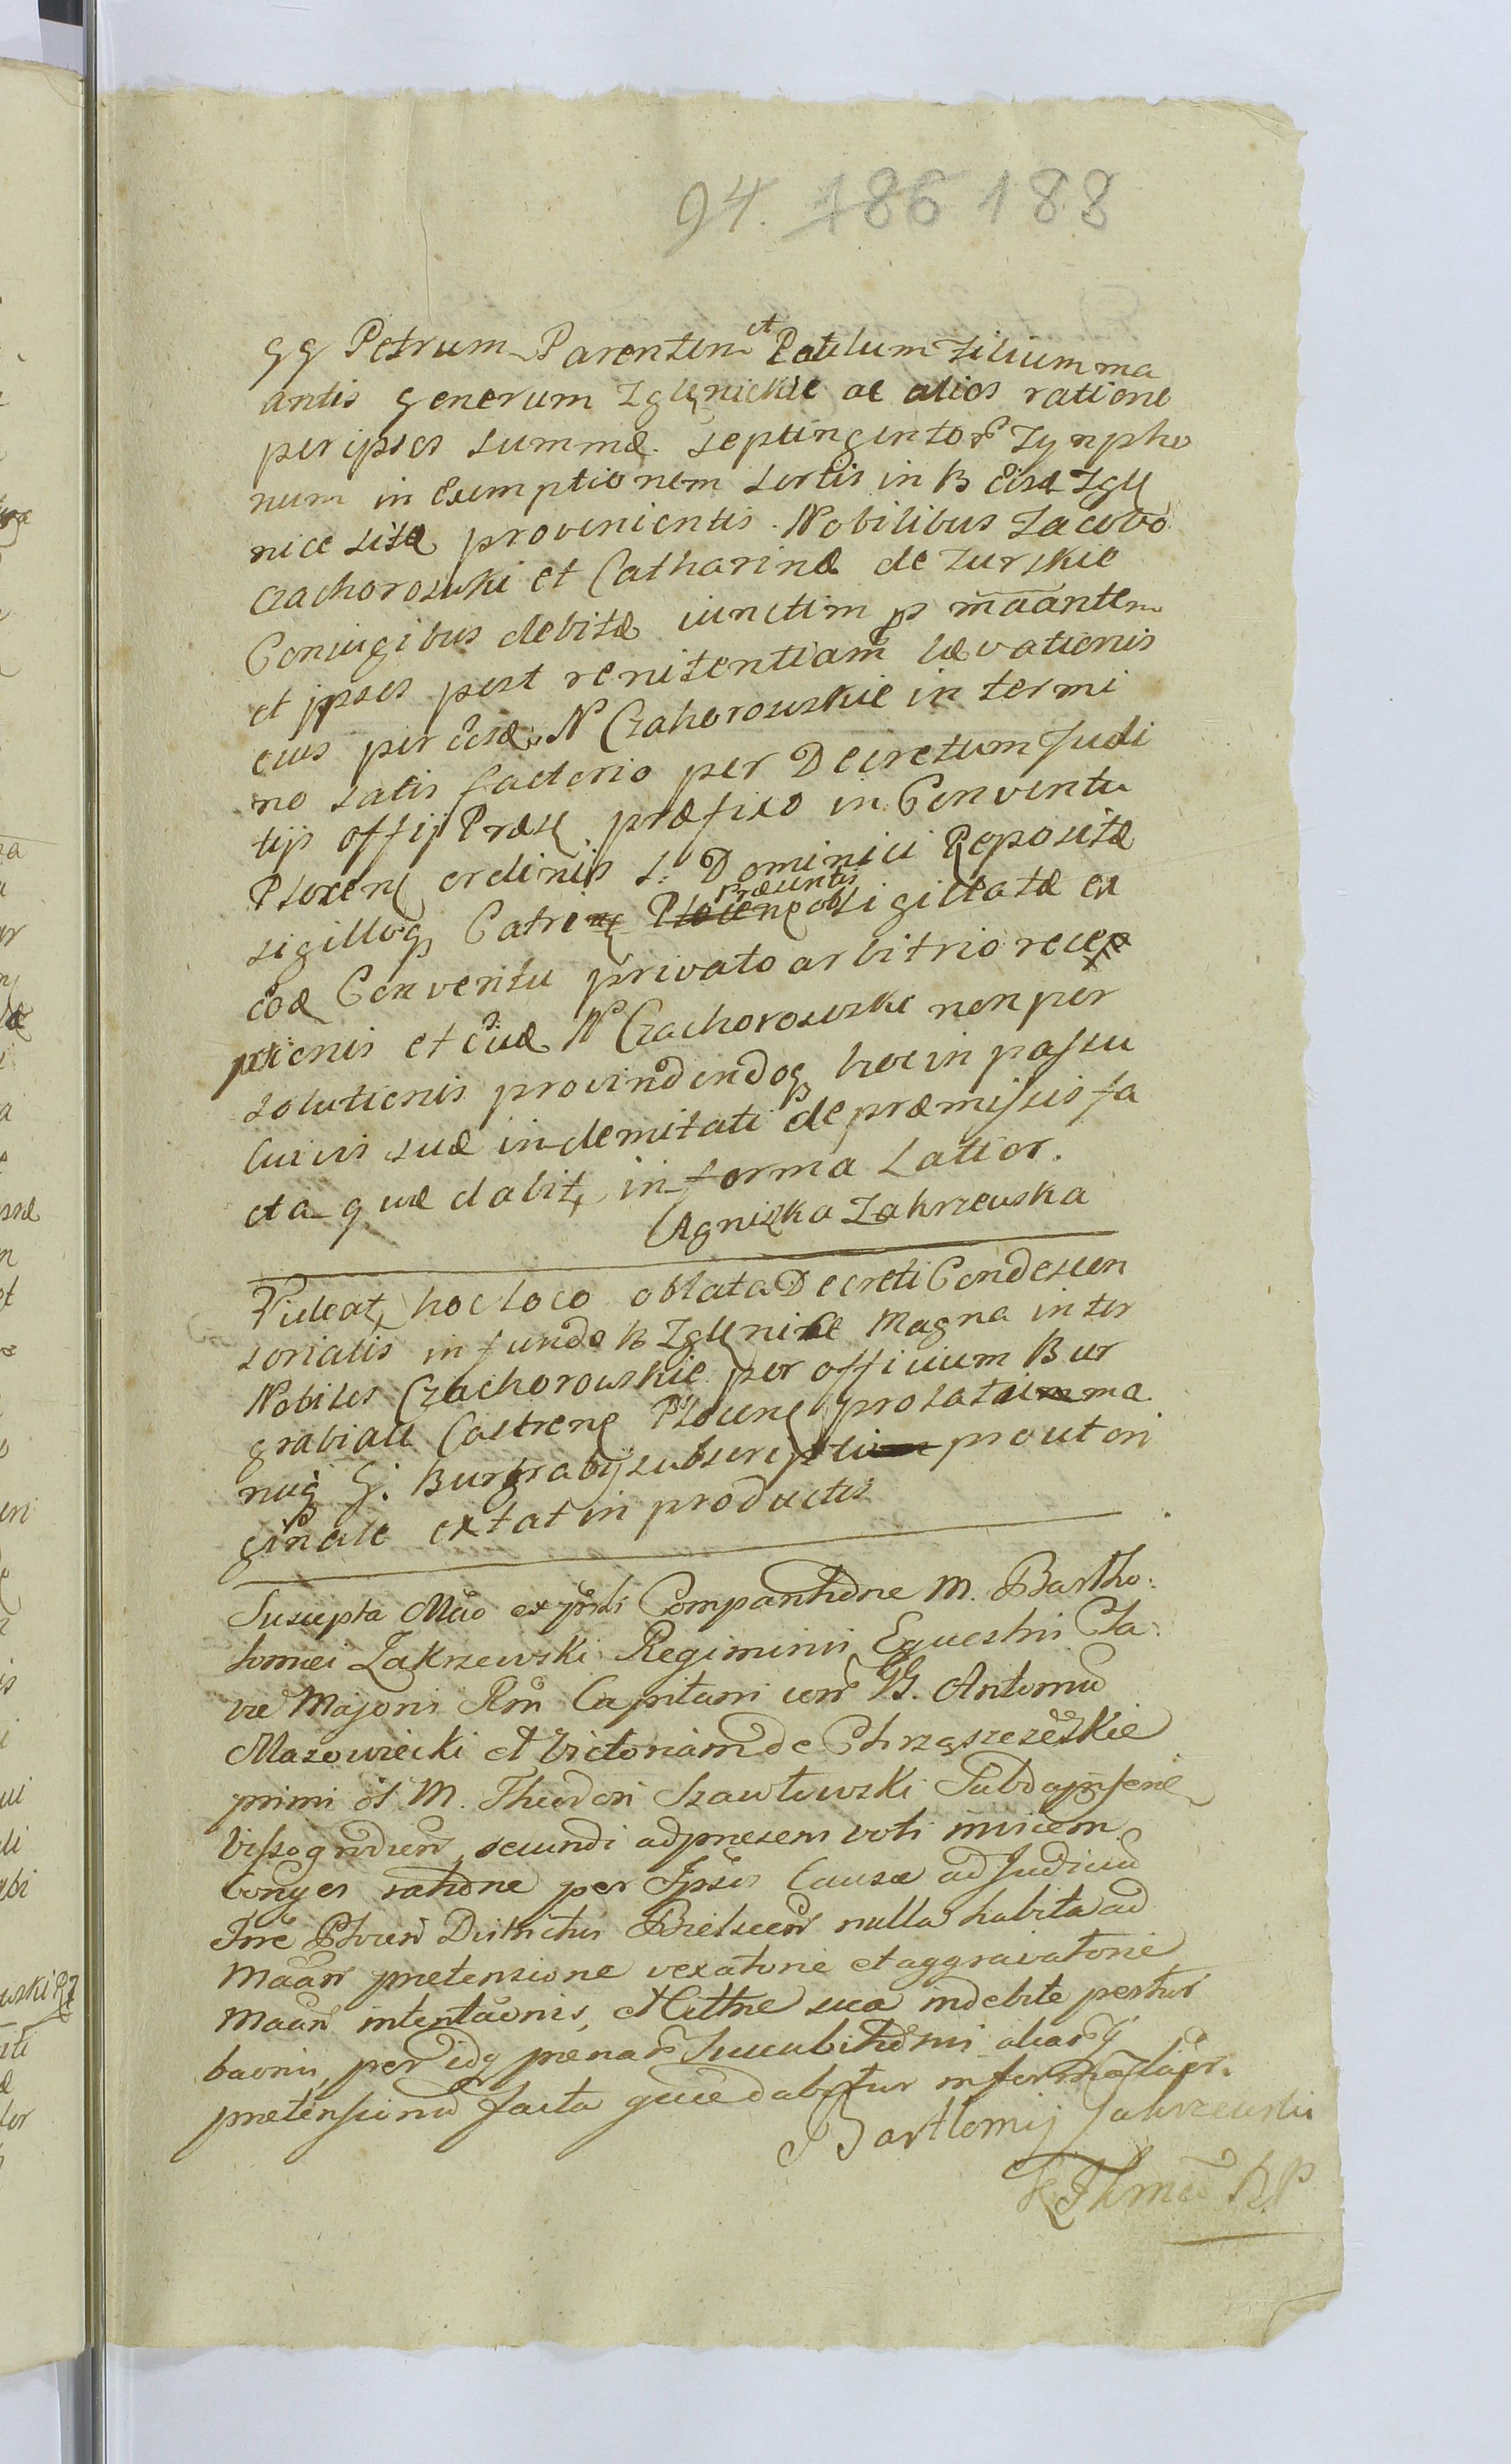 94. 186 188
GG Petrum Parentem et Paulum Filium ma
antis Generum Zglenickie ac alios ratione
per ipsos summæ septingentor Tynpho
num in exemptionem sortis in B Zgle
nice sitæ provenientis Nobilibus Iacobo
Czachorowski et Catharinæ de Turskie
Coniugibus debitæ iunctim p maantem
et ipsos post renitentiam lævationis
eius per N Czahorowskie in termi
no satis factorio per Decretum Judi
tij offij præfixo in Conventu
Plocen ordinis S. Dominici Repositæ
sigilloq Castren Plocen præsentis obsigillatæ ex
eod Conventu privato arbitrio recep
ptionis et N Czachorowski non per
solutionis proindeq hoc in passu
lucris suæ indemitati de præmissis fa
cta quæ dabit in forma Latior.
Agniszka Zakrzewska
Videat hoc loco oblata Decreti Condescen
sorialis in fundo B Zglenice Magna inter
Nobiles Czachorowskie per officium Bur
grabiale Castren Plocen prolati ma
nuq G. Burgrabij subscripti prout ori
ginale extat in productis
Suscepta Mtio ex Comparitione M. Bartho:
lomei Zakrzewski Regiminis Equestris Cla:
væ Majoris Rni Capitani con GG. Antonium
Mazowiecki et Victoriam de Chrząszczeskie
primi ol M. Theodori Szawłowski
Vissogrodien, secundi ad presens voti invicem
conges ratione per Ipsos Causæ ad Judicium
Tnre Plocen Districtus Bielscen nulla habita ad
Maan pretensione vexatione et aggravatione
Maan intentaonis, et sua indebite pertur
baonis, per idq penar Succubitionis aliarq
pretensionum facta quæ dabitur in forma latior.
Bartłomij Zakrzewski
R P